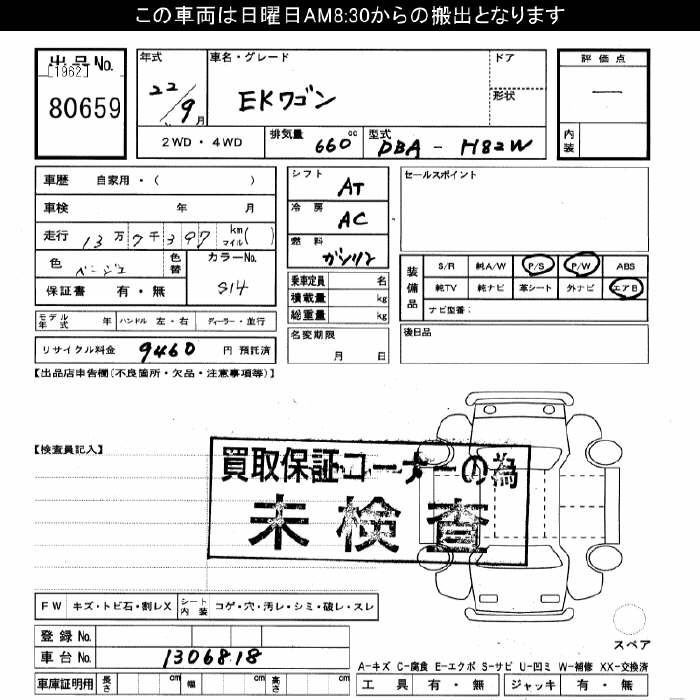 この車両は日曜日AM8:30からの搬出となります
出品No.
[1962]
80659
年式
22/9月
車名・グレード
EKワゴン
ドア
形状
評価点
—
内装
2WD・4WD
排気量 660 cc
型式 DBA - H82W
車歴 自家用・(
車検 年 月
走行 13万7千397 km マイル( )
色 ベージュ 色替
カラーNo. S14
保証書 有・無
シフト AT
冷房 AC
燃料 ガソリン
乗車定員 名
積載量 kg
総重量 kg
セールスポイント
装備品
S/R 純A/W P/S P/W ABS
純TV 純ナビ 革シート 外ナビ エアB
ナビ型番:
モデル年式 年 ハンドル 左・右 ディーラー・並行
名変期限 月 日
後日品
リサイクル料金 9460 円 預託済
【出品店申告欄(不良箇所・欠品・注意事項等)】
【検査員記入】
買取保証コーナーの為
未検査
FW キズ・トビ石・割レX シート内装 コゲ・穴・汚レ・シミ・破レ・スレ
スペア
登録No.
車台No. 1306818
A-キズ C-腐食 E-エクボ S-サビ U-凹ミ W-補修 XX-交換済
車庫証明用 長さ cm 幅 cm 高さ cm
工具 有・無 ジャッキ 有・無